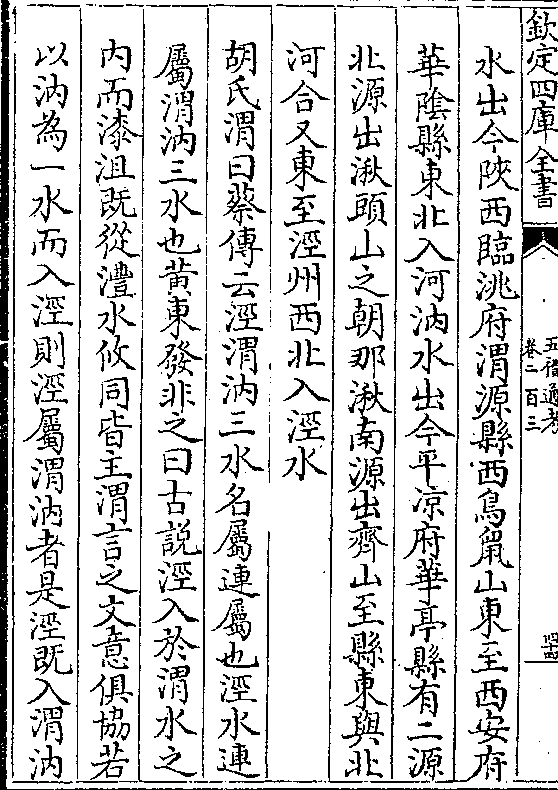 欽定四庫全書
五禮通考
卷二百三
水出今陜西臨洮府渭源縣西鳥䑕山東至西安府
華陰縣東北入河汭水出今平凉府華亭縣有二源
北源出湫頭山之朝那湫南源出齊山至縣東與北
河合又東至涇州西北入涇水
胡氏渭曰蔡傳云涇渭汭三水名屬連屬也涇水連
屬渭汭三水也黄東發非之曰古説涇入於渭水之
内而漆沮既從灃水攸同皆主渭言之文意俱協若
以汭為一水而入涇則涇屬渭汭者是涇既入渭汭